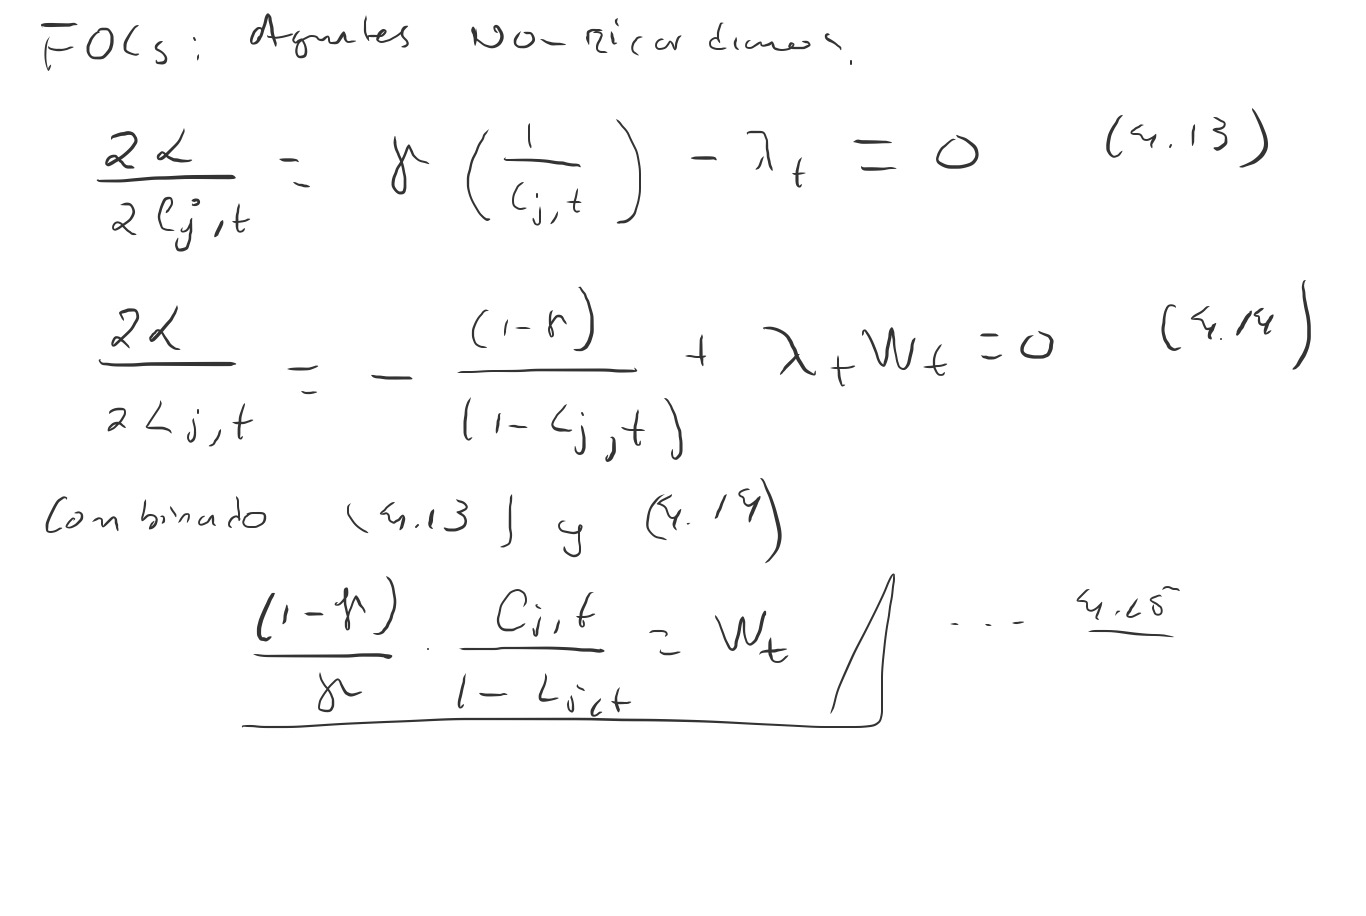 FOCs: Agentes No-Ricardianos.
∂L/∂C_{j,t} = γ (1/C_{j,t}) - λ_t = 0 (4.13)
∂L/∂L_{j,t} = - (1-γ)/(1-L_{j,t}) + λ_t W_t = 0 (4.14)
Combinado (4.13) y (4.14)
(1-γ)/γ · C_{j,t}/1-L_{j,t} = W_t ... 4.15